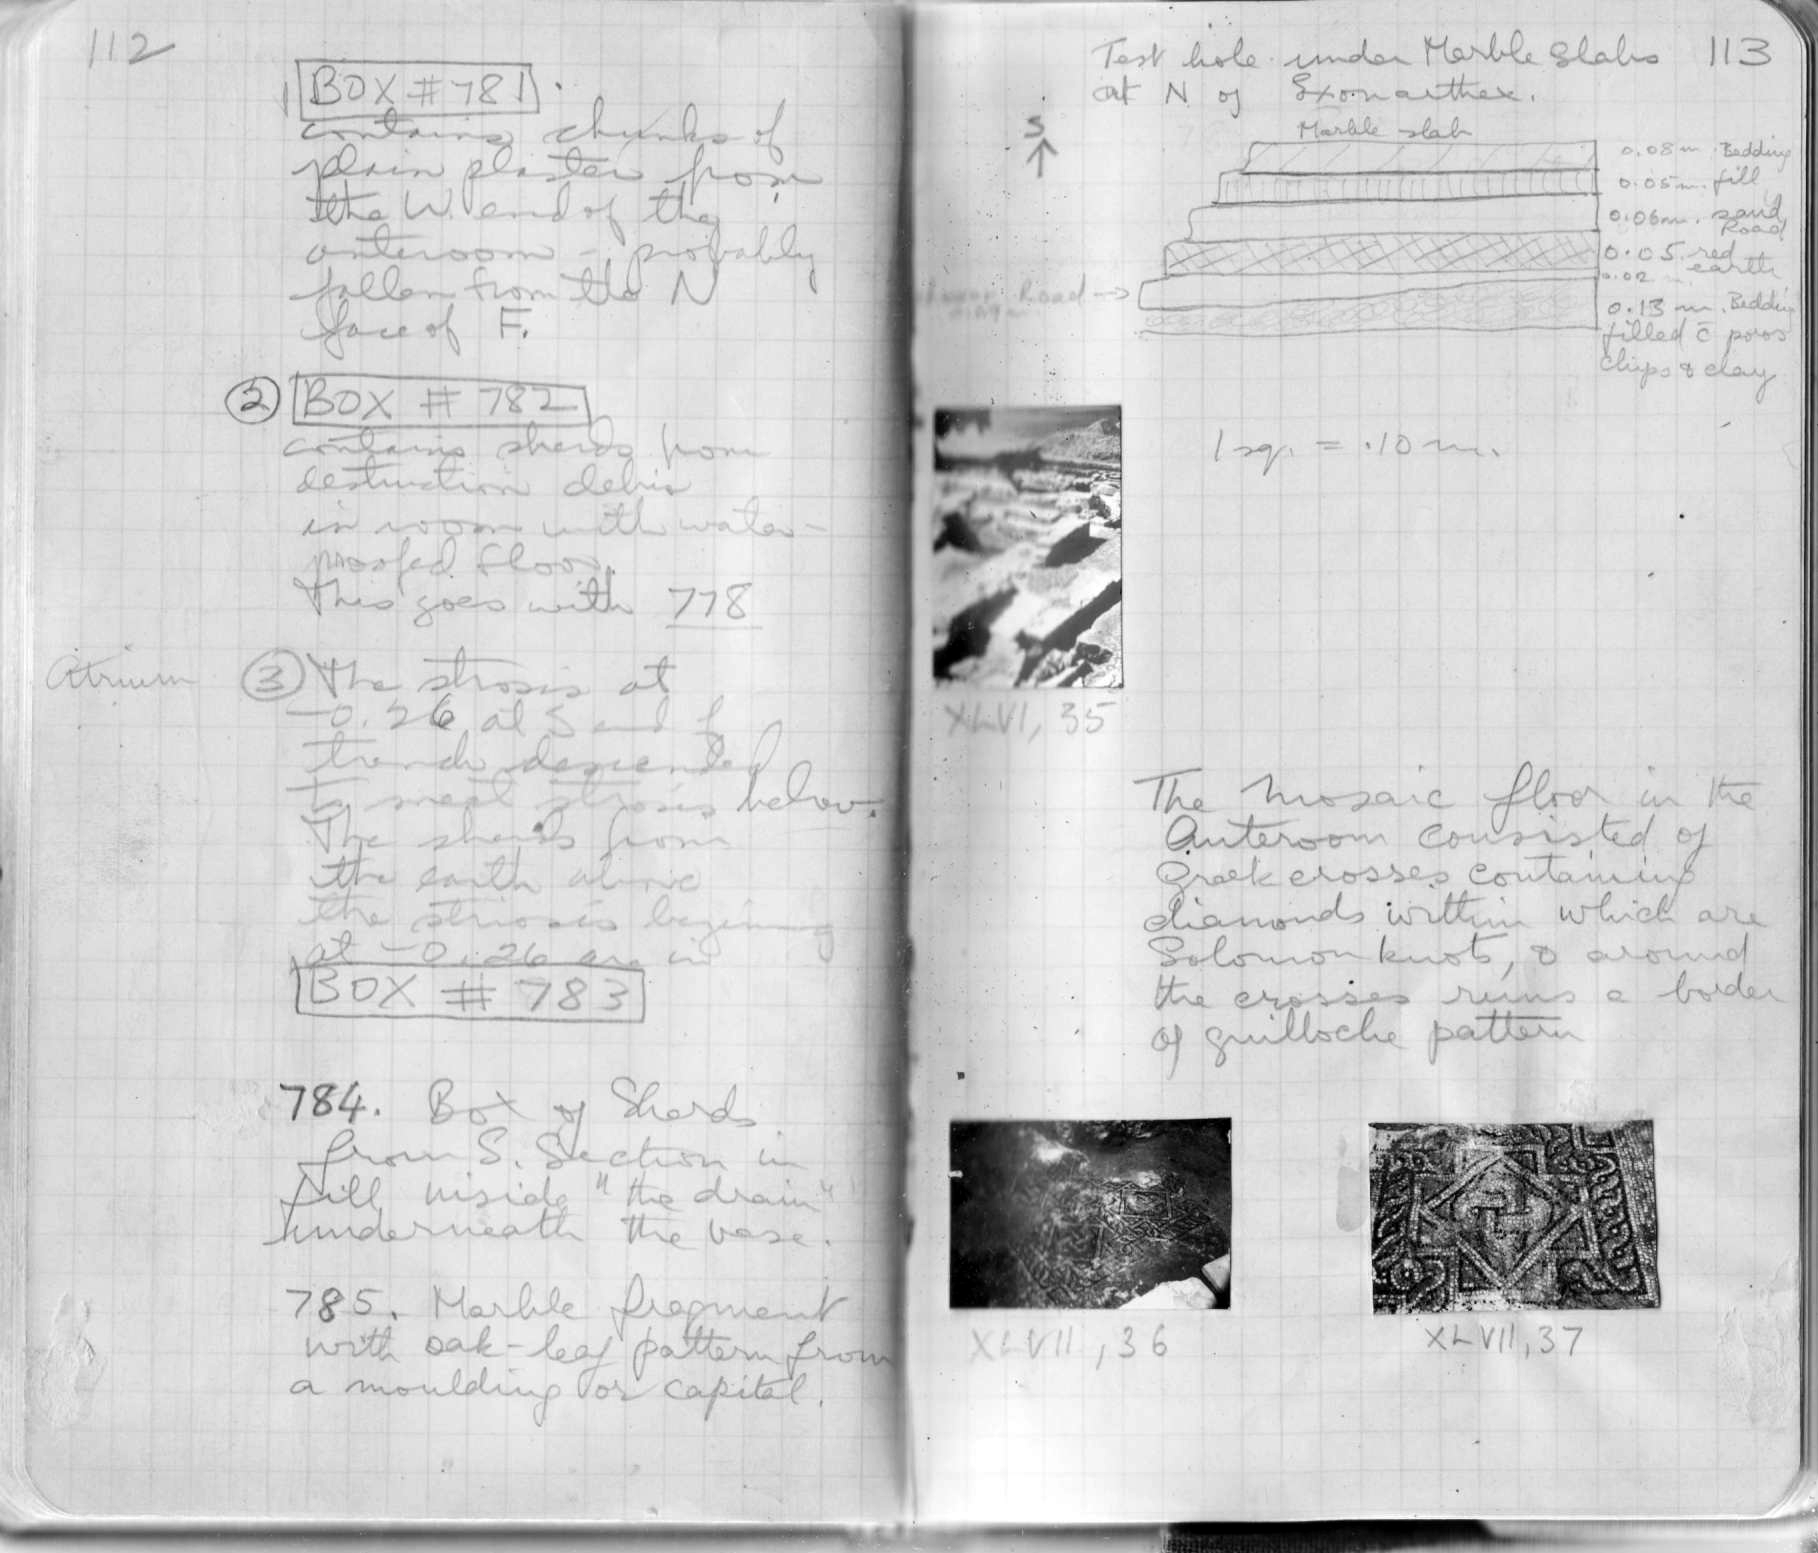 112
1 BOX # 781.
contains chunks of
plain plaster from
the W. end of the
anteroom - probably
fallen from the N
face of F.
2 BOX # 782
contains sherds from
destruction debris
in room with water-
proofed floor.
This goes with 778
Atrium
3 The strosis at
-0.26 at S end of
trench descended
to meet strosis below.
The sherds from
the earth above
the striosis beginning
at -0.26 are in
BOX # 783
784. Box of Sherds
from S. Section in
fill inside "the drain"
underneath the vase.
785. Marble fragment
with oak-leaf pattern from
a moulding or capital.
113
Test hole under Marble slabs
at N of Exonarthex.
S
Marble slab
0.08 m. Bedding
0.05 m. fill
0.06 m. sand
Road
0.05 red
earth
0.02 m.
Road →
0.13 m. Bedding
filled c̄ poros
chips & clay
1 sq. = .10 m.
XLVI, 35
The Mosaic floor in the
Anteroom consisted of
Greek crosses containing
diamonds within which are
Solomon knots, & around
the crosses runs a border
of guilloche pattern
XLVII, 36
XLVII, 37